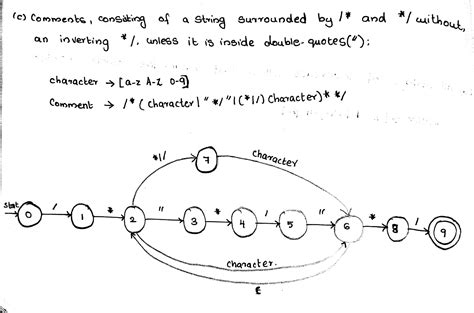 (c) Comments, consisting of a string surrounded by /* and */ without,
an inverting */, unless it is inside double-quotes("):
character → [a-z A-Z 0-9]
Comment → /* ( character | " */ " | (*|/) Character)* */
*|/
7
character
Start
0
/
1
*
2
"
3
*
4
/
5
"
6
*
8
/
9
character.
ε